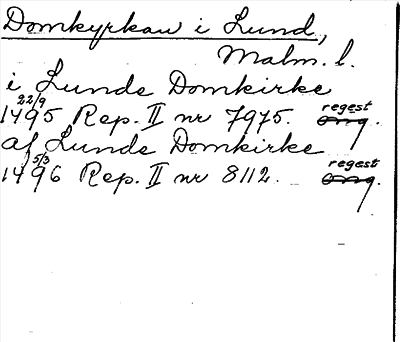 Domkyrkan i Lund,
Malm. l.
i Lunde Domkirke
1495 22/9 Rep. II nr 7975. regest
af Lunde Domkirke
1496 5/3 Rep. II nr 8112. regest